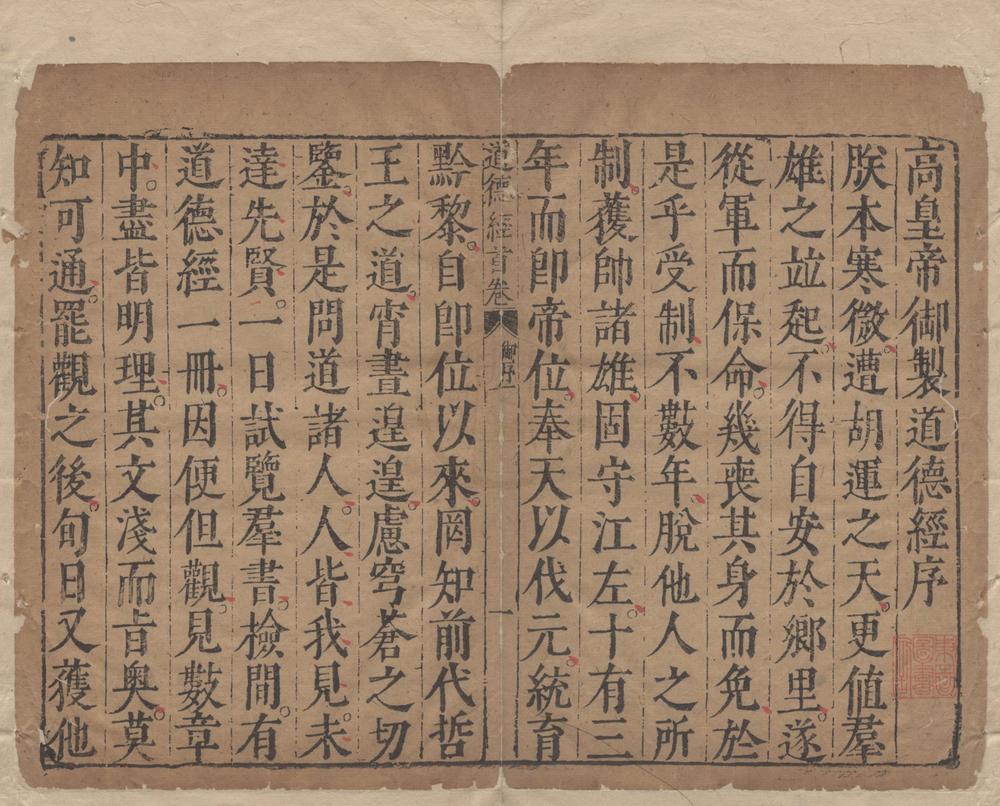 高皇帝御製道德經序
朕本寒微遭胡運之天更值羣
雄之竝起不得自安於鄉里遂
從軍而保命幾喪其身而免於
是乎受制不數年脫他人之所
制獲帥諸雄固守江左十有三
年而卽帝位奉天以伐元統育
道德經首卷 御序 一
黔黎自卽位以來罔知前代哲
王之道宵晝遑遑慮穹蒼之切
鑒於是問道諸人人皆我見未
達先賢一日試覽羣書檢間有
道德經一冊因便但觀見數章
中盡皆明理其文淺而旨奧莫
知可通罷觀之後旬日又獲他